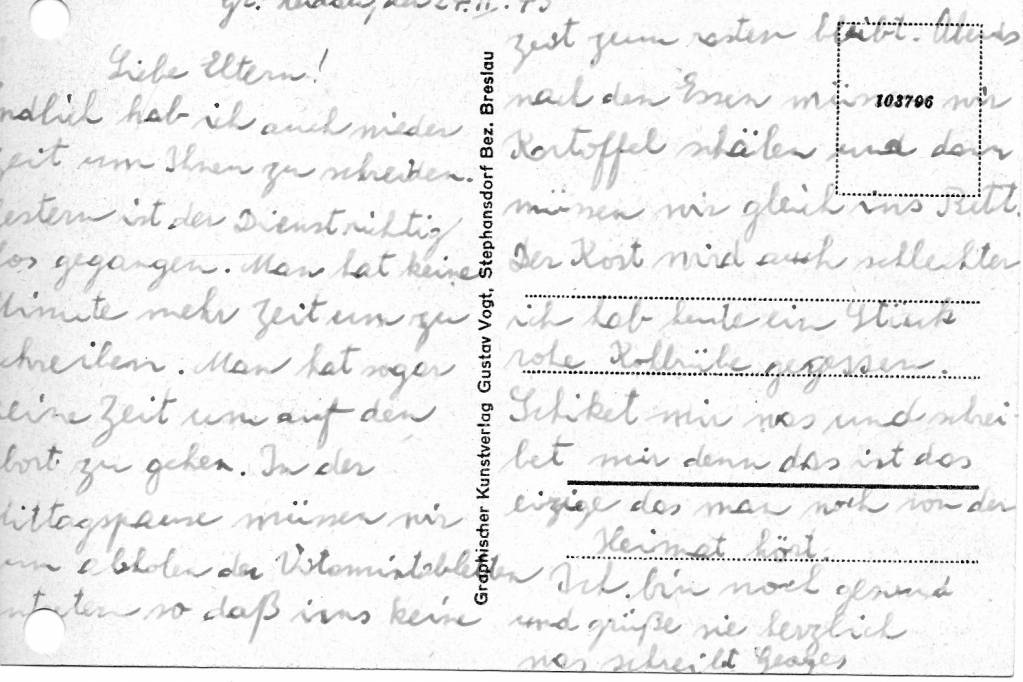 den 27.II.43
Liebe Eltern!
ndlich hab ich auch wieder
Zeit um Ihnen zu schreiben.
estern ist der Dienst richtig
los gegangen. Man hat keine
Minute mehr Zeit um zu
chreiben. Man hat sogar
keine Zeit um auf den
bort zu gehen. In der
Mittagspause müssen wir
um abholen der Vitamintabletten
so daß uns keine
zeit zum rasten bleibt. Abends
nach den Essen müssen wir
Kartoffel schälen und dann
müssen wir gleich ins Bett.
Der Kost wird auch schlechter
ich hab heute ein Stück
rohe Kollrübe gegessen.
Schiket mir was und schrei-
bet mir denn das ist das
einzige das man noch von der
Heimat hört.
Ich bin noch gesund
und grüße sie herzlich
was schreibt Georges
Graphischer Kunstverlag Gustav Vogt, Stephansdorf Bez. Breslau
103796